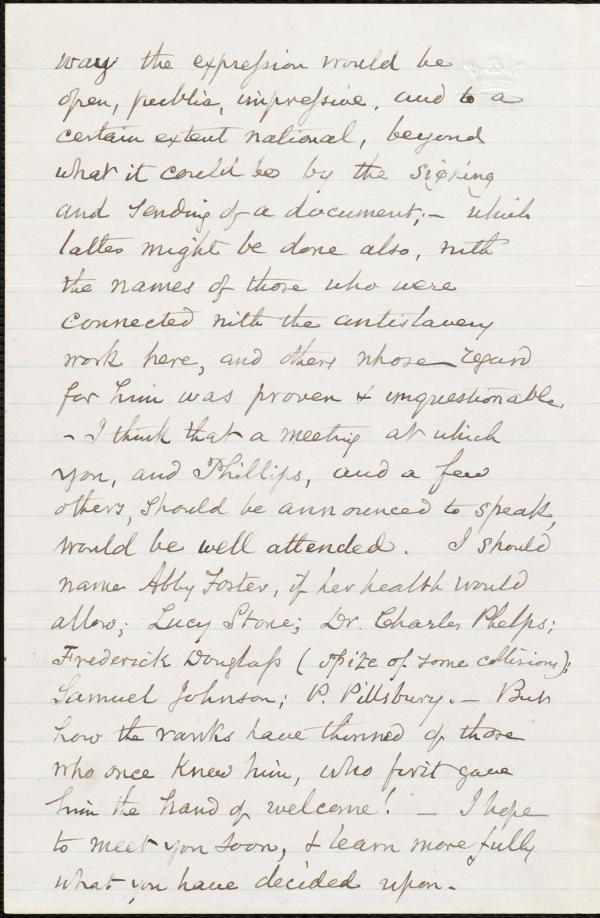 way the expression would be
open, public, impressive, and to a
certain extent national, beyond
what it could be by the signing
and sending of a document; – which
latter might be done also, with
the names of those who were
connected with the antislavery
work here, and others whose regard
for him was proven & unquestionable.
– I think that a meeting at which
you, and Phillips, and a few
others, should be announced to speak,
would be well attended. I should
name Abby Foster, if her health would
allow; Lucy Stone; Dr. Charles Phelps;
Frederick Douglass ( spite of some collisions);
Samuel Johnson; P. Pillsbury. – But
how the ranks have thinned of those
who once knew him, who first gave
him the hand of welcome! – I hope
to meet you soon, & learn more fully
what you have decided upon.